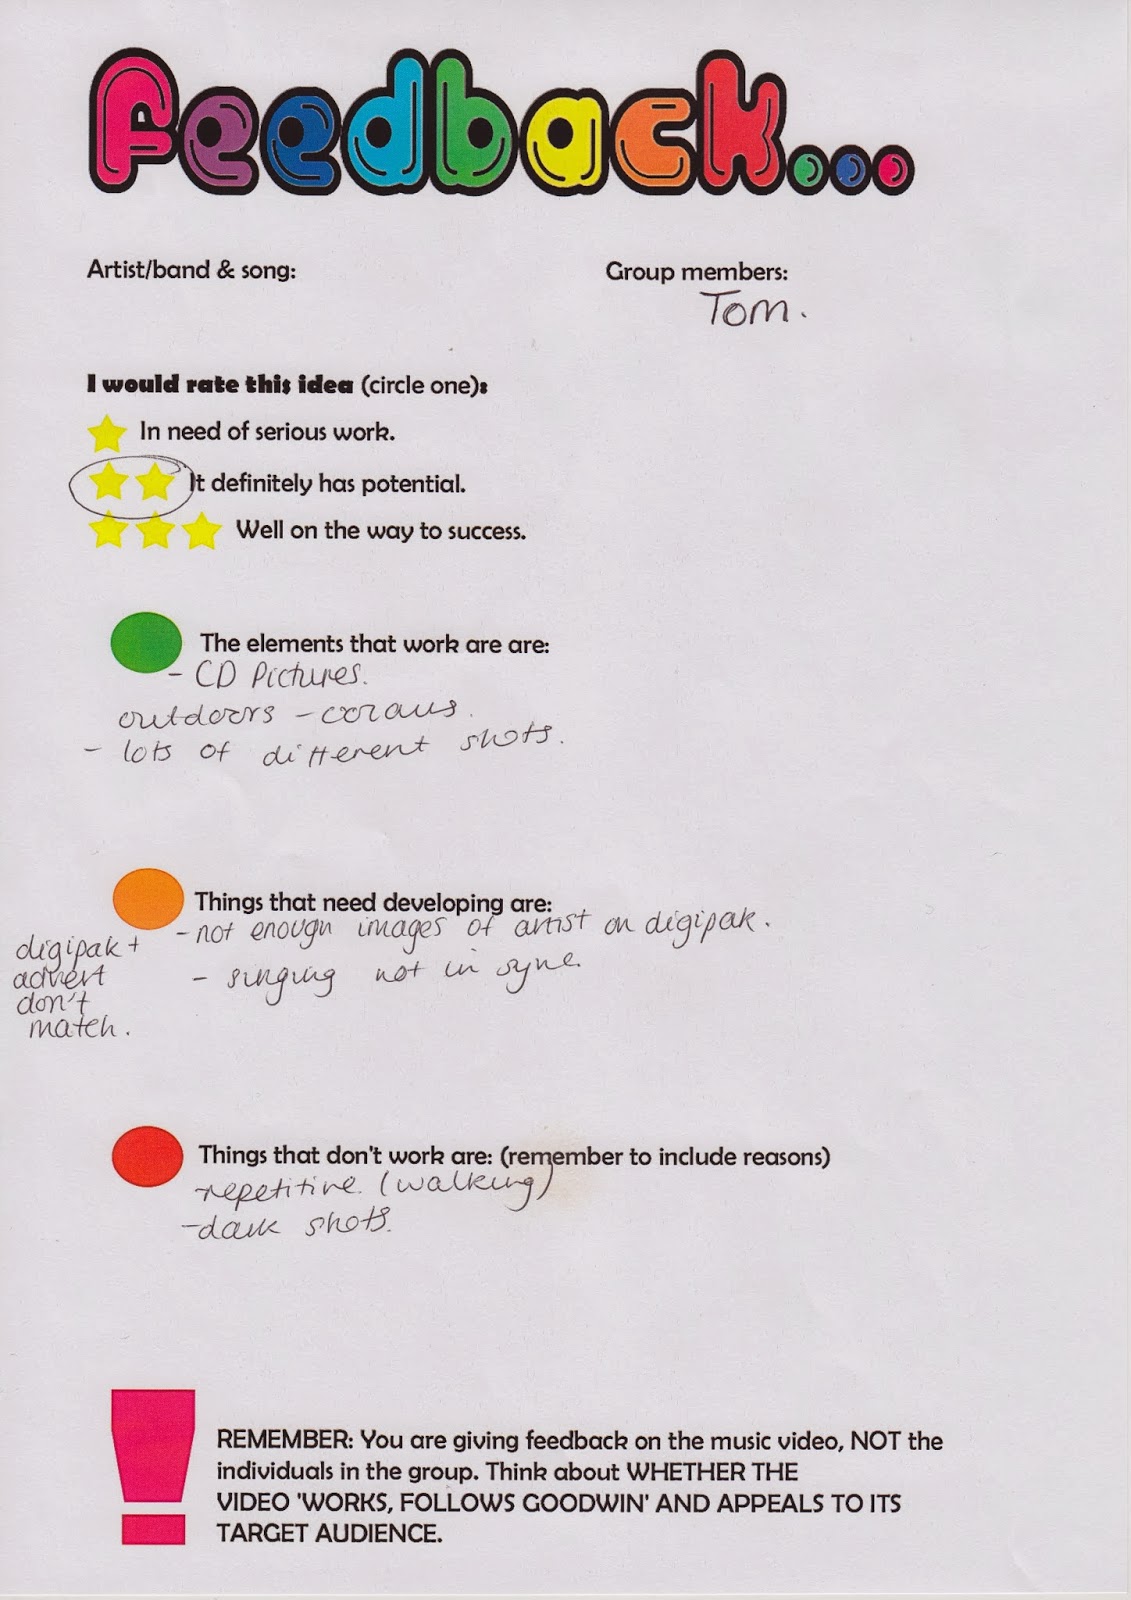 Feedback...
Artist/band & song:
Group members:
Tom.
I would rate this idea (circle one):
In need of serious work.
It definitely has potential.
Well on the way to success.
The elements that work are are:
- CD Pictures.
outdoors -
- lots of different shots.
Things that need developing are:
- not enough images of artist on digipak.
- singing not in sync.
digipak +
advert
don't
match.
Things that don't work are: (remember to include reasons)
-repetitive. (walking)
-dark shots.
REMEMBER: You are giving feedback on the music video, NOT the
individuals in the group. Think about WHETHER THE
VIDEO 'WORKS, FOLLOWS GOODWIN' AND APPEALS TO ITS
TARGET AUDIENCE.